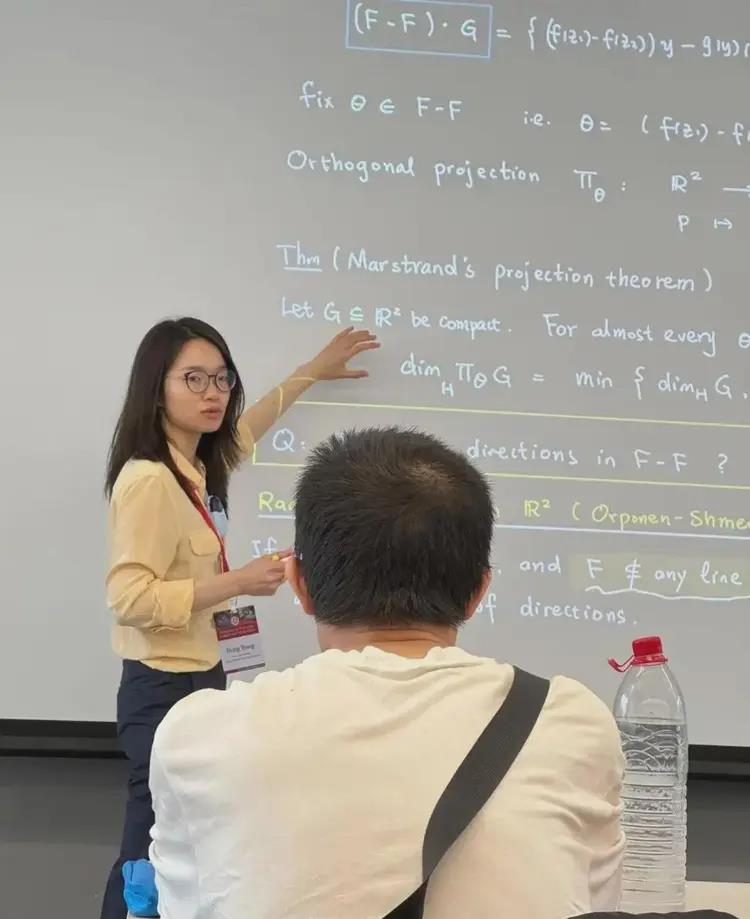 (F-F) · G = { (f(z₁)-f(z₂)) y - g(y)
fix θ ∈ F-F i.e. θ = (f(z₁) - f
Orthogonal projection π_θ : ℝ² →
p ↦
Thm (Marstrand's projection theorem)
Let G ⊆ ℝ² be compact. For almost every θ
dim_H π_θ G = min { dim_H G,
Q: directions in F-F ?
Rad ℝ² (Orponen-Shme
If and F ⊄ any line
of directions.